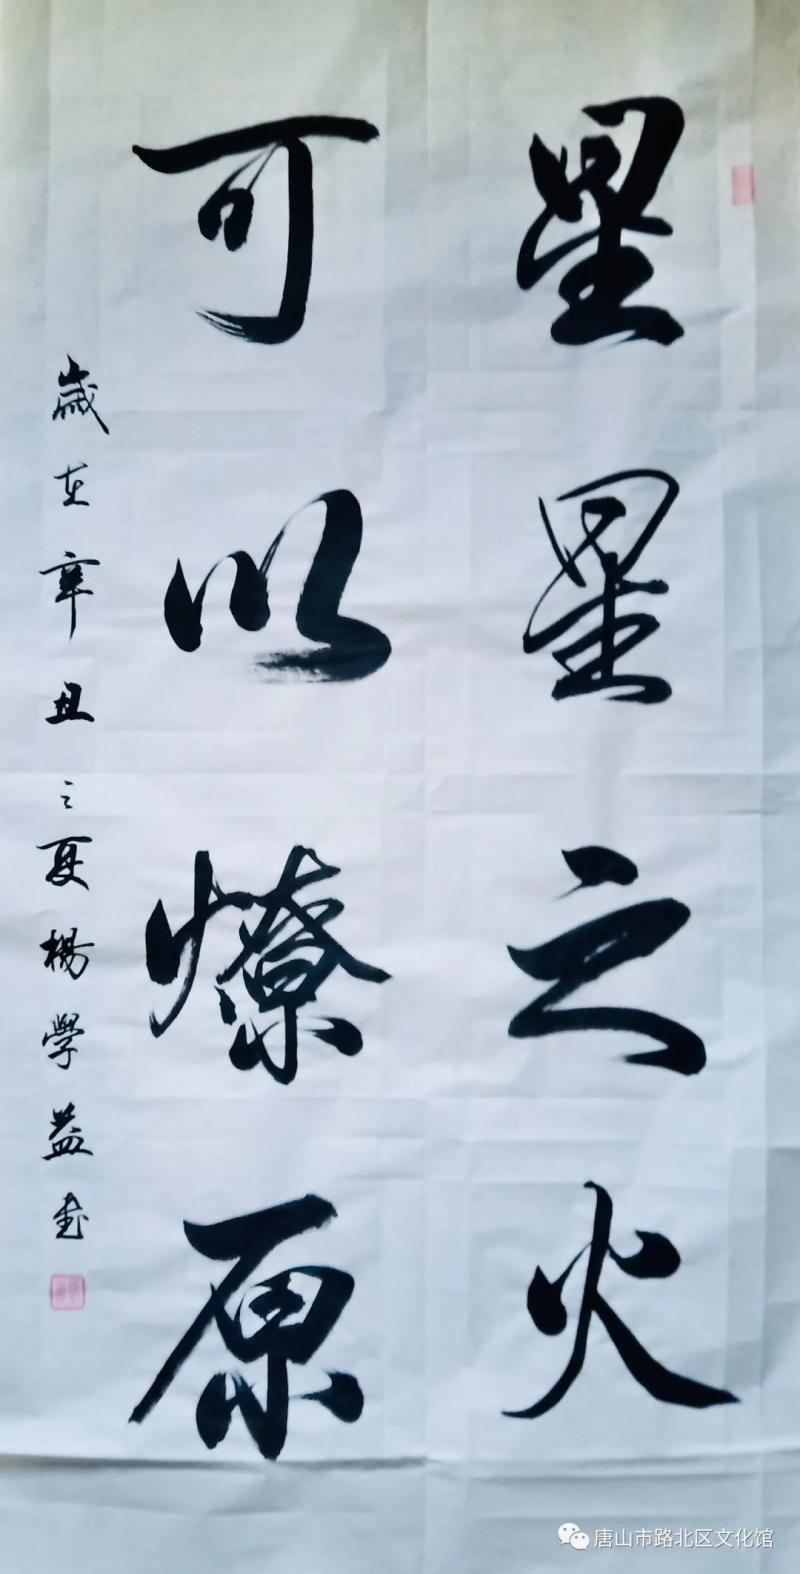 星星之火
可以燎原
歲在辛丑之夏楊學益書
唐山市路北区文化馆